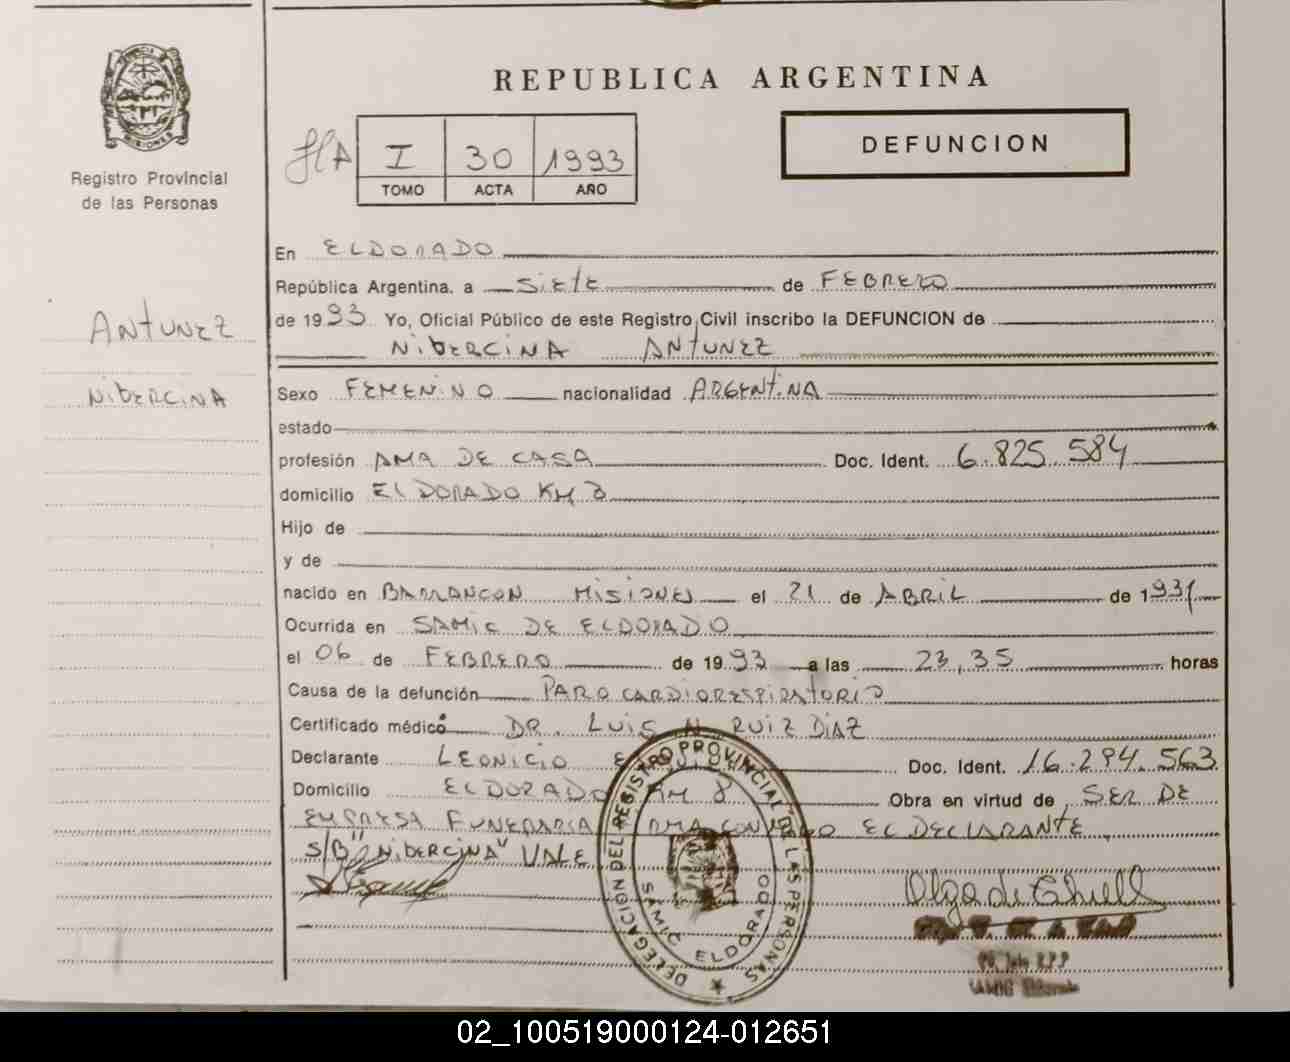 REPUBLICA ARGENTINA
Registro Provincial
de las Personas
I 30 1993
TOMO ACTA AÑO
DEFUNCION
ANTUNEZ
NIBERCINA
En ELDORADO
República Argentina, a SIETE de FEBRERO
de 1993 Yo, Oficial Público de este Registro Civil inscribo la DEFUNCION de
NIBERCINA ANTUNEZ
Sexo FEMENINO nacionalidad ARGENTINA
estado
profesión AMA DE CASA Doc. Ident. 6.825.584
domicilio ELDORADO KM 8
Hijo de
y de
nacido en BARRANCON MISIONES el 21 de ABRIL de 1931
Ocurrida en SAMIC DE ELDORADO
el 06 de FEBRERO de 1993 a las 23,35 horas
Causa de la defunción PARO CARDIORESPIRATORIO
Certificado médico DR. LUIS N RUIZ DIAZ
Declarante LEONICIO Doc. Ident. 16.294.563
Domicilio ELDORADO KM 8 Obra en virtud de SER DE
EMPRESA FUNERARIA FIRMA CONMIGO EL DECLARANTE
S/B "NIBERCINA" VALE
DELEGACION DEL REGISTRO PROVINCIAL DE LAS PERSONAS
SAMIC ELDORADO
SAMIC Eldorado
02_100519000124-012651